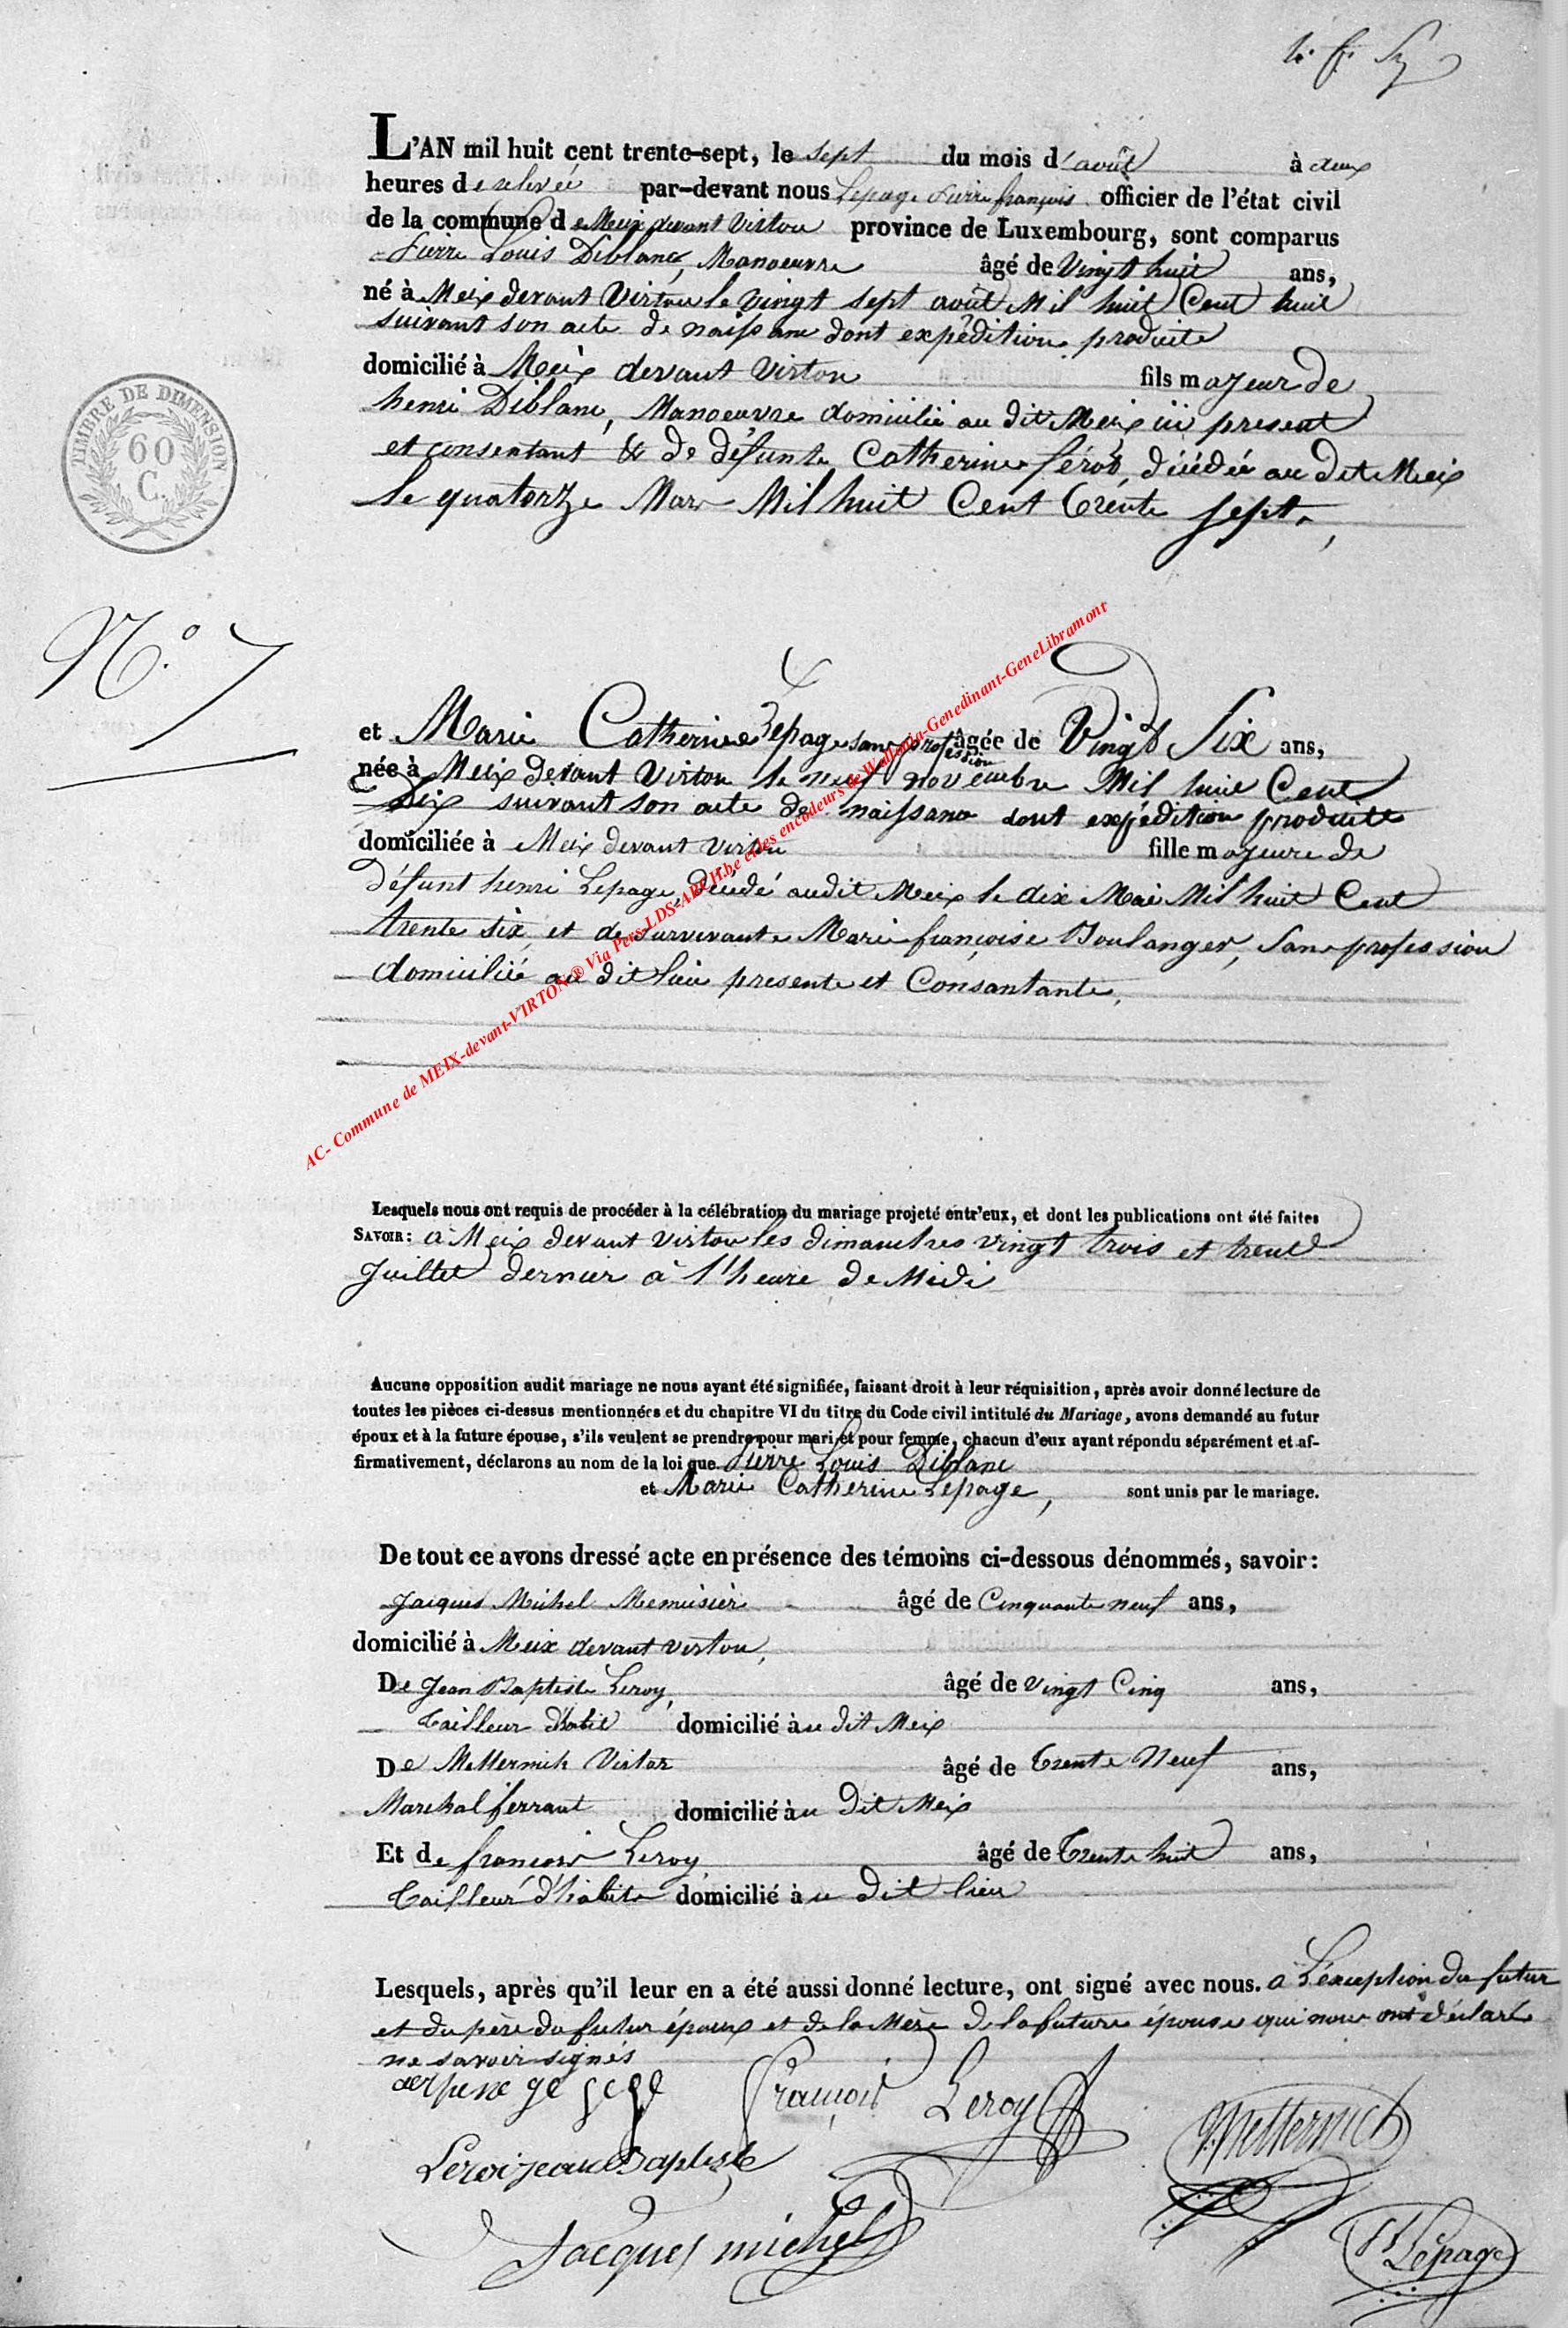 L'AN mil huit cent trente-sept, le sept du mois d'août à deux
heures de relevée par-devant nous Lepage Pierre françois officier de l'état civil
de la commune de Meix devant Virton province de Luxembourg, sont comparus
Pierre Louis Diblanc, Manoeuvre âgé de Vingt huit ans,
né à Meix devant Virton le vingt sept août Mil huit Cent huit
suivant son acte de naissance dont expédition produite
domicilié à Meix devant Virton fils majeur de
henri Diblanc, Manoeuvre domicilié au dit Meix ici present
et consentant & de défunte Catherine , décédée au dit Meix
le quatorze Mars Mil huit Cent trente sept,
TIMBRE DE DIMENSION
60
C.
N.° 7
et Marie Catherine Lepage sans profession âgée de Vingt Six ans,
née à Meix devant Virton le neuf novembre Mil huit Cent
Dix suivant son acte de naissance dont expédition produite
domiciliée à Meix devant Virton fille majeure de
Défunt henri Lepage, décédé audit Meix le dix Mai Mil huit Cent
trente six, et de survivante Marie françoise Boulanger, sans profession
domicilié au dit lieu presente et Consantante,
AC- Commune de MEIX-devant-VIRTON® Via Pers-LDS-ARCH.be et les encodeurs de Wallonia-Genedinant-GeneLibramont
Lesquels nous ont requis de procéder à la célébration du mariage projeté entr'eux, et dont les publications ont été faites
SAVOIR: à Meix devant Virton les dimanches vingt trois et trente
Juillet dernier à l'heure de Midi
Aucune opposition audit mariage ne nous ayant été signifiée, faisant droit à leur réquisition, après avoir donné lecture de
toutes les pièces ci-dessus mentionnées et du chapitre VI du titre du Code civil intitulé du Mariage, avons demandé au futur
époux et à la future épouse, s'ils veulent se prendre pour mari et pour femme, chacun d'eux ayant répondu séparément et af-
firmativement, déclarons au nom de la loi que Pierre Louis Diblanc
et Marie Catherine Lepage, sont unis par le mariage.
De tout ce avons dressé acte en présence des témoins ci-dessous dénommés, savoir:
Jacques Michel âgé de Cinquante neuf ans,
domicilié à Meix devant virton,
De Jean Baptiste Leroy, âgé de vingt Cinq ans,
tailleur d'habit domicilié au dit Meix
De Metternich Victor âgé de trente Neuf ans,
Marechal ferrant domicilié au dit Meix
Et de françois Leroy, âgé de trente huit ans,
tailleur d'habits domicilié au dit lieu
Lesquels, après qu'il leur en a été aussi donné lecture, ont signé avec nous. a L'éxception du futur
et du père du futur époux et de la Mère de la future épouse qui nous ont déclaré
ne savoir signés
François Leroy
Metternich
Leroi jean Baptiste
Jacques michel
Lepage